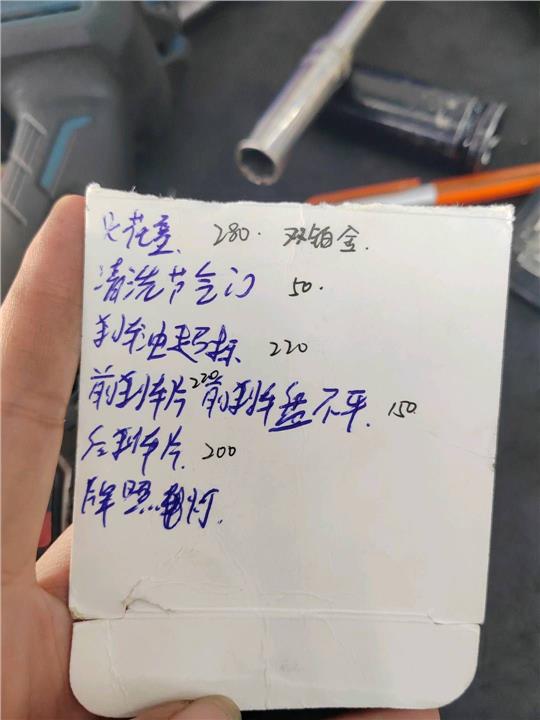 火花塞 280. 双铂金.
清洗节气门 50.
刹车油超标 220
前刹车片 220 前刹车盘不平. 150
后刹车片. 200
牌照灯.